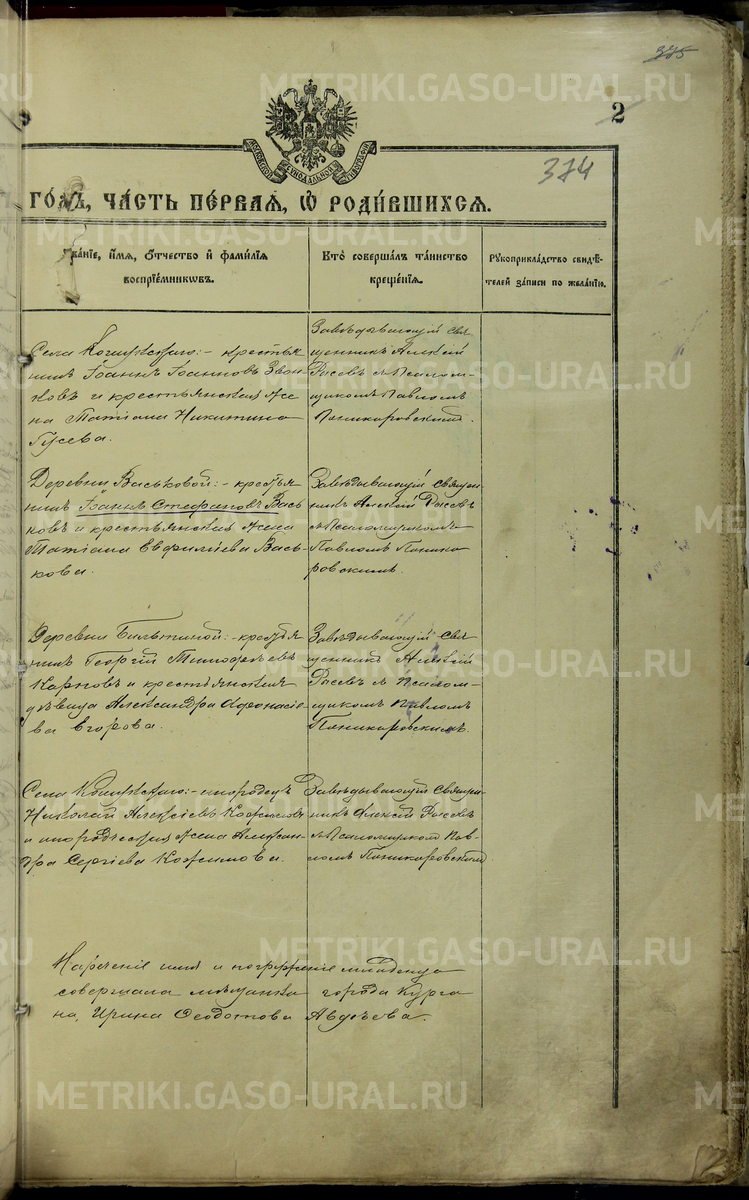 375
2
МОСКОВСКОЙ СѴНОДАЛЬНОЙ ТИПОГРАФІИ
374
ГО́ДЪ, ЧА́СТЬ ПЕ́РВАѦ, Ѡ҆ РОДИ́ВШИХСѦ.
Зва́нїе, и҆́мѧ, ѻ҆́тчество и҆ фами́лїѧ
воспрїе́мникѡвъ.
Кто̀ соверша́лъ та́инство
креще́нїѧ.
Рꙋкоприкла́дство свидѣ́-
телей за́писи по жела́нїю.
Села : - крестья
нинъ Іоаннъ Іоанновъ Звон
ковъ и крестьянская же
на Татіана Никитина
Гусева.
Завѣдывающій свя
щенникъ Алексій
съ Псалом-
щикомъ Павломъ
Поникаровскимъ.
Деревни Васьковой: - крестья
нинъ Іоаннъ Стефановъ Вась
ковъ и крестьянская жена
Татіана Вась-
кова.
Завѣдывающій священ
никъ Алексій
съ Псаломщикомъ
Павломъ Поника
ровскимъ.
Деревни : - крестья
нинъ Георгій Тимофеевъ
Карповъ и крестьянская
дѣвица Александра Афонасіе
ва Егорова.
Завѣдывающій свя
щенникъ Алексій
съ Псалом-
щикомъ Павломъ
Поникаровскимъ.
Села : - инородецъ
Николай Алексіевъ
и инородческая жена Алексан
дра Сергіева
Завѣдывающій священ
никъ Алексій
съ Псаломщикомъ Пав-
ломъ Поникаровскимъ
Нареченіе имя и погруженіе младенца
совершала мѣщанка города Курга
на, Ирина Ѳеодотова Авдѣева.
METRIKI.GASO-URAL.RU